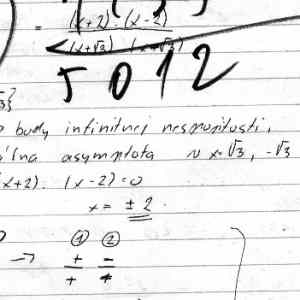 = (x+2)·(x-2)
(x+√3) (x-√3)
5012
body infinitnej nespojitosti,
asymptota v x=√3, -√3
(x+2)·(x-2)=0
x = ±2
① ②
→ + -
+ +